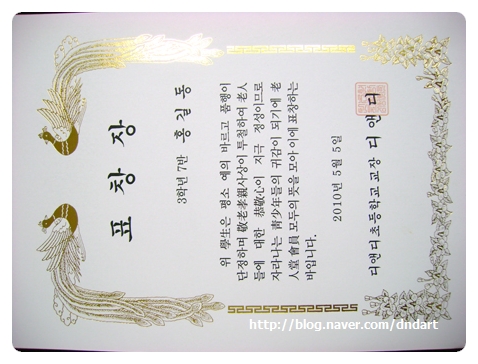 표 창 장
3학년 7반 홍 길 동
위 學生은 평소 예의 바르고 품행이
단정하며 敬老孝親사상이 투철하여 老人
들에 대한 恭敬心이 지극 정성이므로
자라나는 靑少年들의 귀감이 되기에 老
人堂 會員 모두의 뜻을 모아 이에 표창하는
바입니다.
2010년 5월 5일
디앤디초등학교 교장 디 앤 디
http://blog.naver.com/dndart